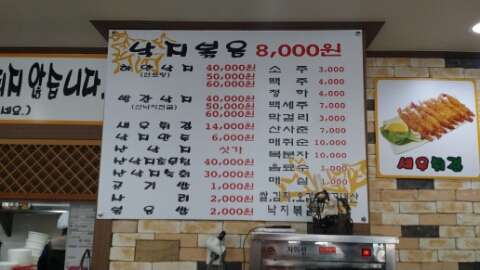 낙지볶음 8,000원
하얀낙지 40,000원
(연포탕) 50,000원
60,000원
빨간낙지 40,000원
(산낙지전골) 50,000원
60,000원
새우튀김 14,000원
낙지만두 6,000원
산낙지 싯가
산낙지볶음 40,000원
산낙지 30,000원
공기밥 1,000원
사리 2,000원
볶음밥 2,000원
소주 3,000
맥주 4,000
청하 4,000
백세주 7,000
막걸리 3,000
산사춘 7,000
매취순 10,000
복분자 10,000
음료수 1,000
매실 1,000
쌀,김치,오 국내산
낙지볶
지 않습니다.
새우튀김